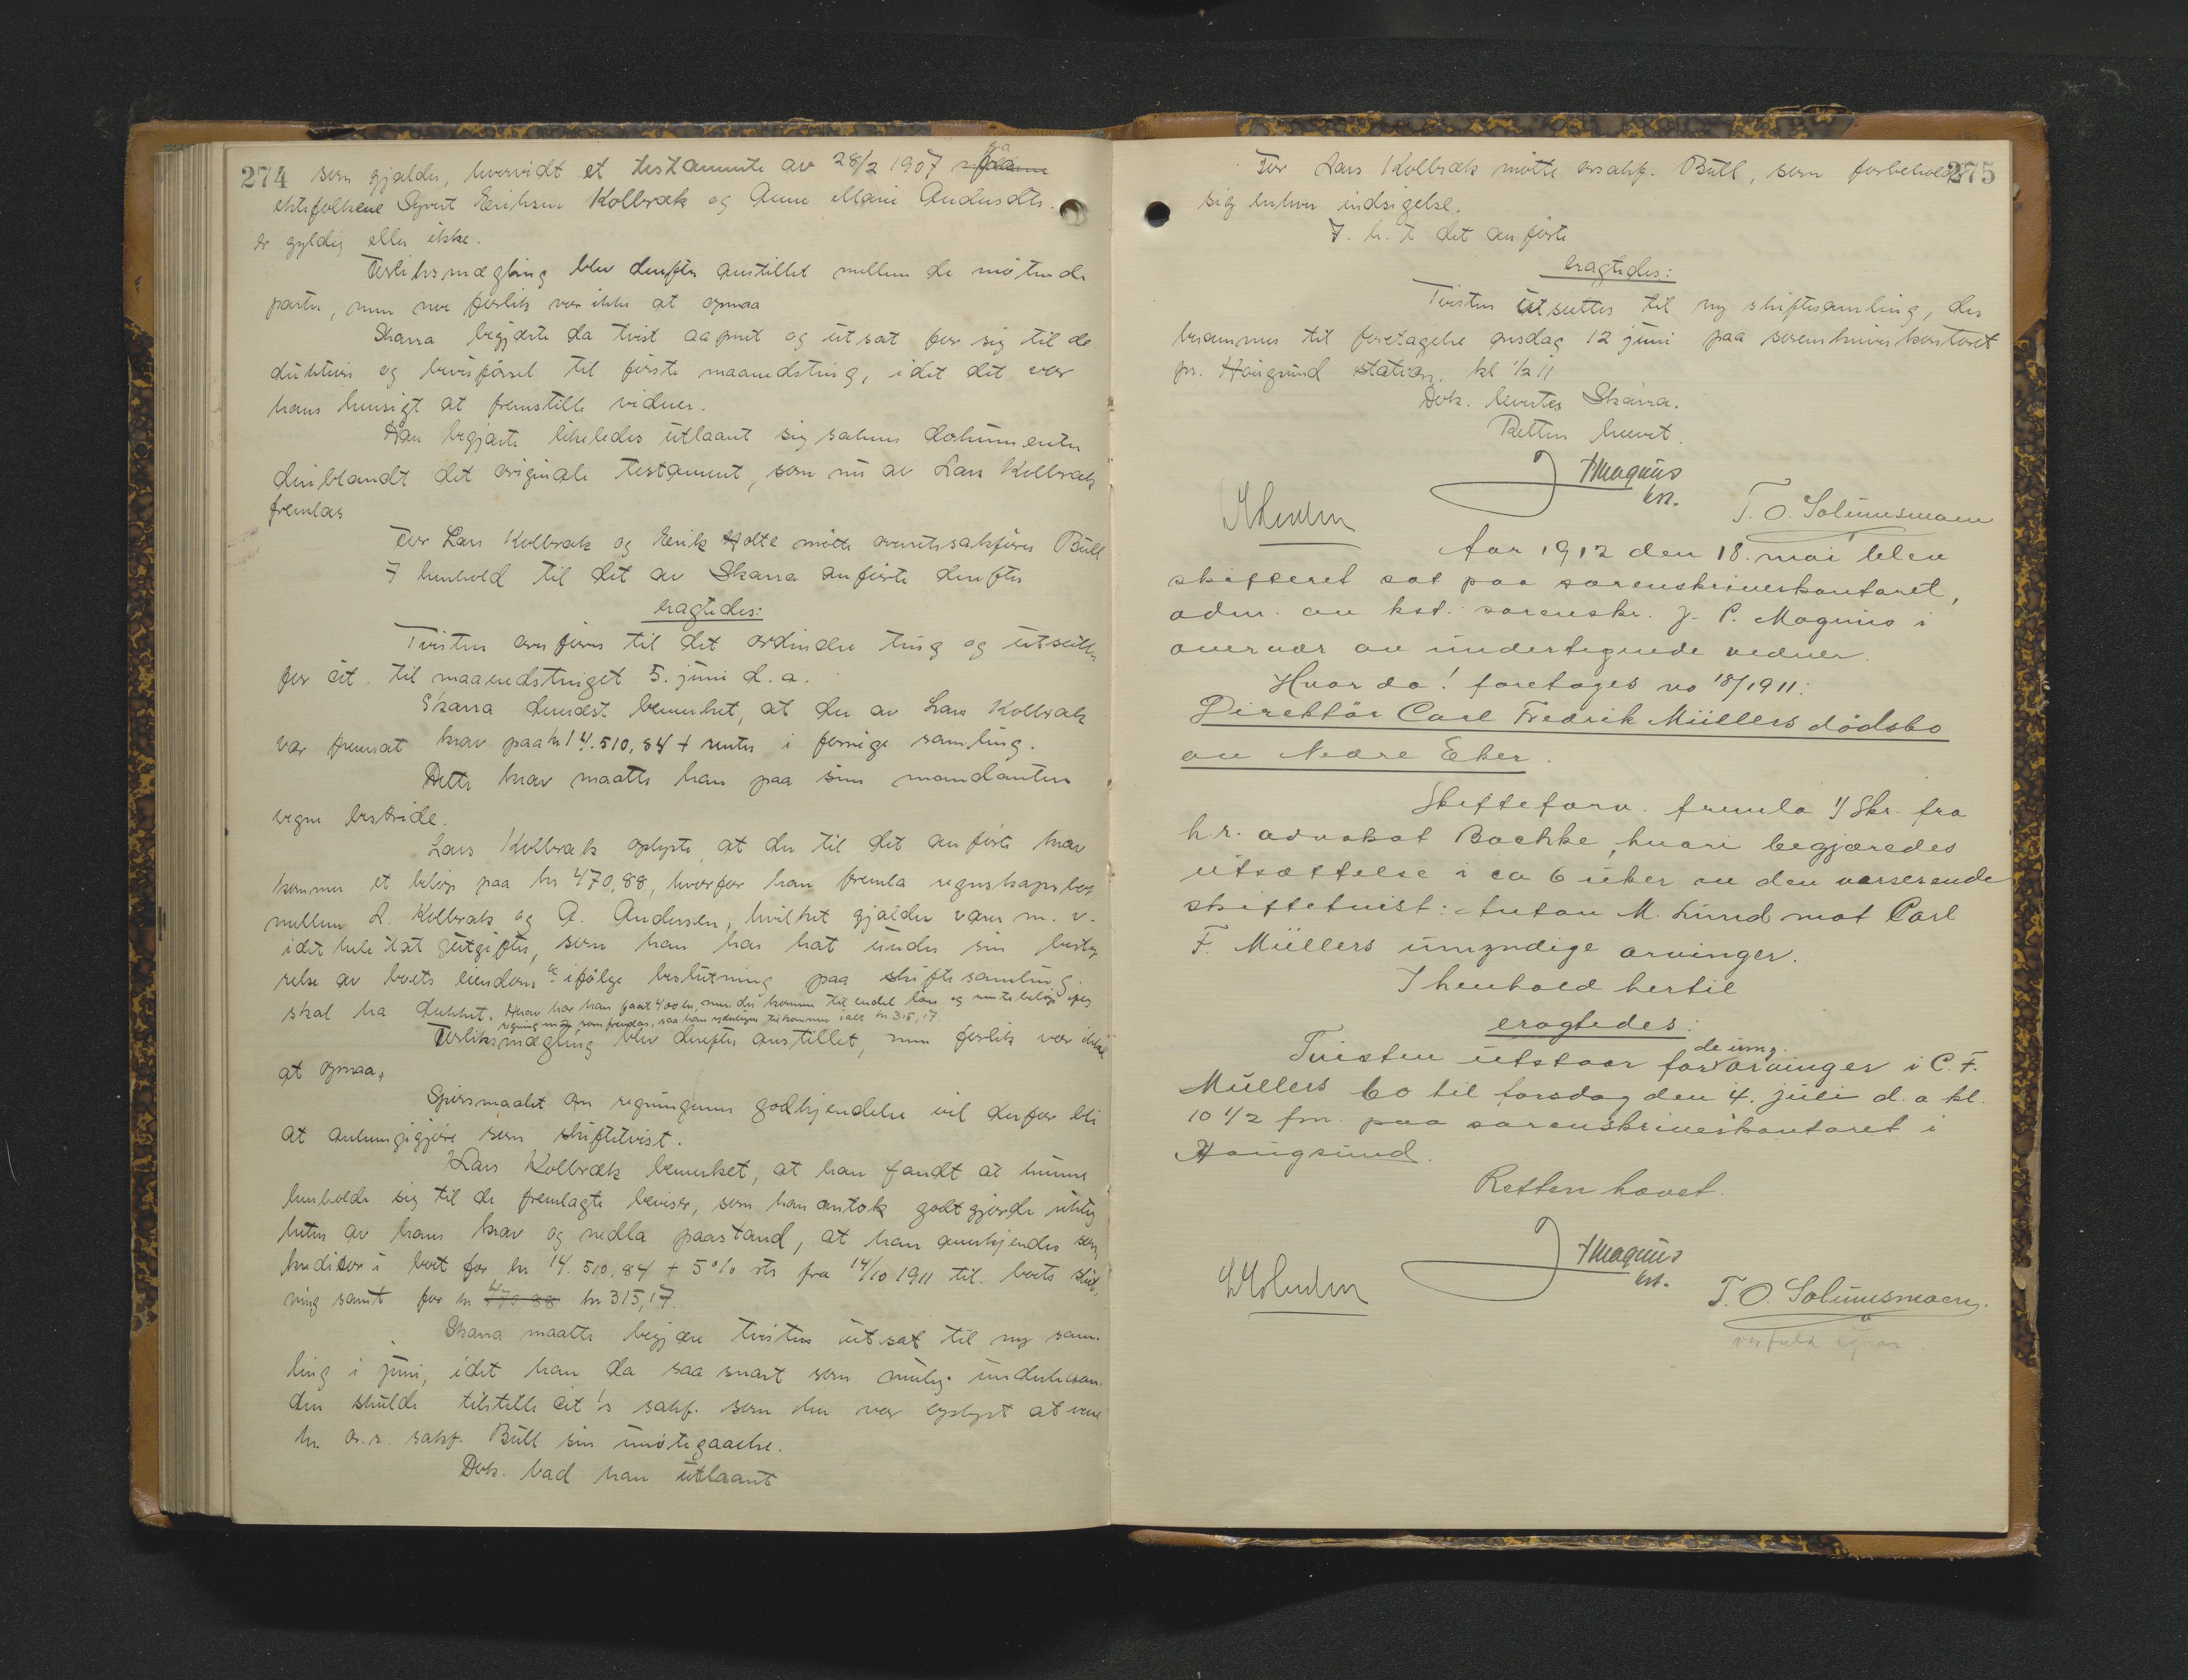 274 som gjælder, hvorvidt et testamente av 28/2 1907 fra
ektefolkene Syvert Eriksen Kolbræk og Anne Marie Andersdtr.
er gyldig eller ikke.
Forliksmægling blev derefter anstillet mellem de møtende
parter, men noe forlik var ikke at opnaa
Skarra begjærte da tvist aapnet og utsat for sig til de
duktion og bevisførsel til første maanedsting, idet det var
hans hensigt at fremstille vidner.
Han begjærte likeledes utlaant sig sakens dokumenter
deriblandt det originale testament, som nu av Lars Kolbræk
fremlas
For Lars Kolbræk og Erik Holte møtte overretssakfører Bull
I henhold til det av Skarra anførte derefter
eragtedes:
Tvisten overføres til det ordinære ting og utsættes
for cit. til maanedstinget 5. juni d. a.
Skarra dernæst bemerket, at der av Lars Kolbræk
var fremsat krav paa kr 14.510,84 + renter i forrige samling.
Dette krav maatte han paa sine mandanters
vegne bestride.
Lars Kolbræk oplyste, at der til det anførte krav
kommer et beløp paa kr 470,88, hvorfor han fremla regnskapsbok
mellem L. Kolbræk og A. Andersen, hvilket gjælder varer m. v.
idet hele tat utgifter, som han har hat under sin besty
relse av boets eiendom ifølge beslutning paa skiftesamling
skal ha dækket. Herav har han faat 400 kr, men der kommer til endel lön og rentebeløp efter
regning, som fremlas, saa han ydeligere tilkommer ialt kr 315,17
Forliksmægling blev derefter anstillet, men forlik var ikke
at opnaa.
Spørsmaalet om regningens godkjendelse vil derfor bli
at anhængiggjøre som skiftetvist.
Lars Kolbræk bemerket, at han fandt at kunne
henholde sig til de fremlagte beviser, som han antok godtgjorde riktig
heten av hans krav og nedla paastand, at han anerkjendes som
kreditor i boet for kr 14.510,84 + 5% rte fra 14/10 1911 til boets slut
ning samt for kr 470,88 kr 315,17.
Skarra maatte begjære tvisten utsat til ny sam
ling i juni, idet han da saa snart som mulig underhaan
den skulde tilstille cit's sakf. som der var oplyst at være
hr. o.r. sakf. Bull sin imøtegaaelse.
Dok. bad han utlaant
275
For Lars Kolbræk møtte orsakf. Bull, som forbeholdt
sig enhver indsigelse.
I. h. t det anførte
eragtedes:
Tvisten utsættes til ny skiftesamling, der
berammes til foretagelse onsdag 12 juni paa sorenskriverkontoret
pr. Hougsund station. kl 1/2 11
Dok. levertes Skarra.
Retten hævet.
J Magnus
kst.
T. O. Solumsmoen
Aar 1912 den 18. mai blev
skifteret sat paa sorenskriverkontoret,
adm. av kst. sorenskr. J. P. Magnus i
overvær av undertegnede vidner.
Hvor da! foretages no 18/1911:
Direktör Carl Fredrik Müllers dödsbo
av Nedre Eker.
Skifteforv. fremla 1/ Skr. fra
h.r. advokat Bachke, hvori begjæredes
utsættelse i ca 6 uker av den verserende
skiftetvist: Anton M. Lund mot Carl
F. Müllers umyndige arvinger.
I henhold hertil
eragtedes:
Tvisten utstaar for de umy. arvinger i C. F.
Müllers bo til torsdag den 4. juli d. a kl.
10 1/2 fm. paa sorenskriverkontoret i
Hougsund.
Retten hævet.
J Magnus
kst.
T. O. Solumsmoen.